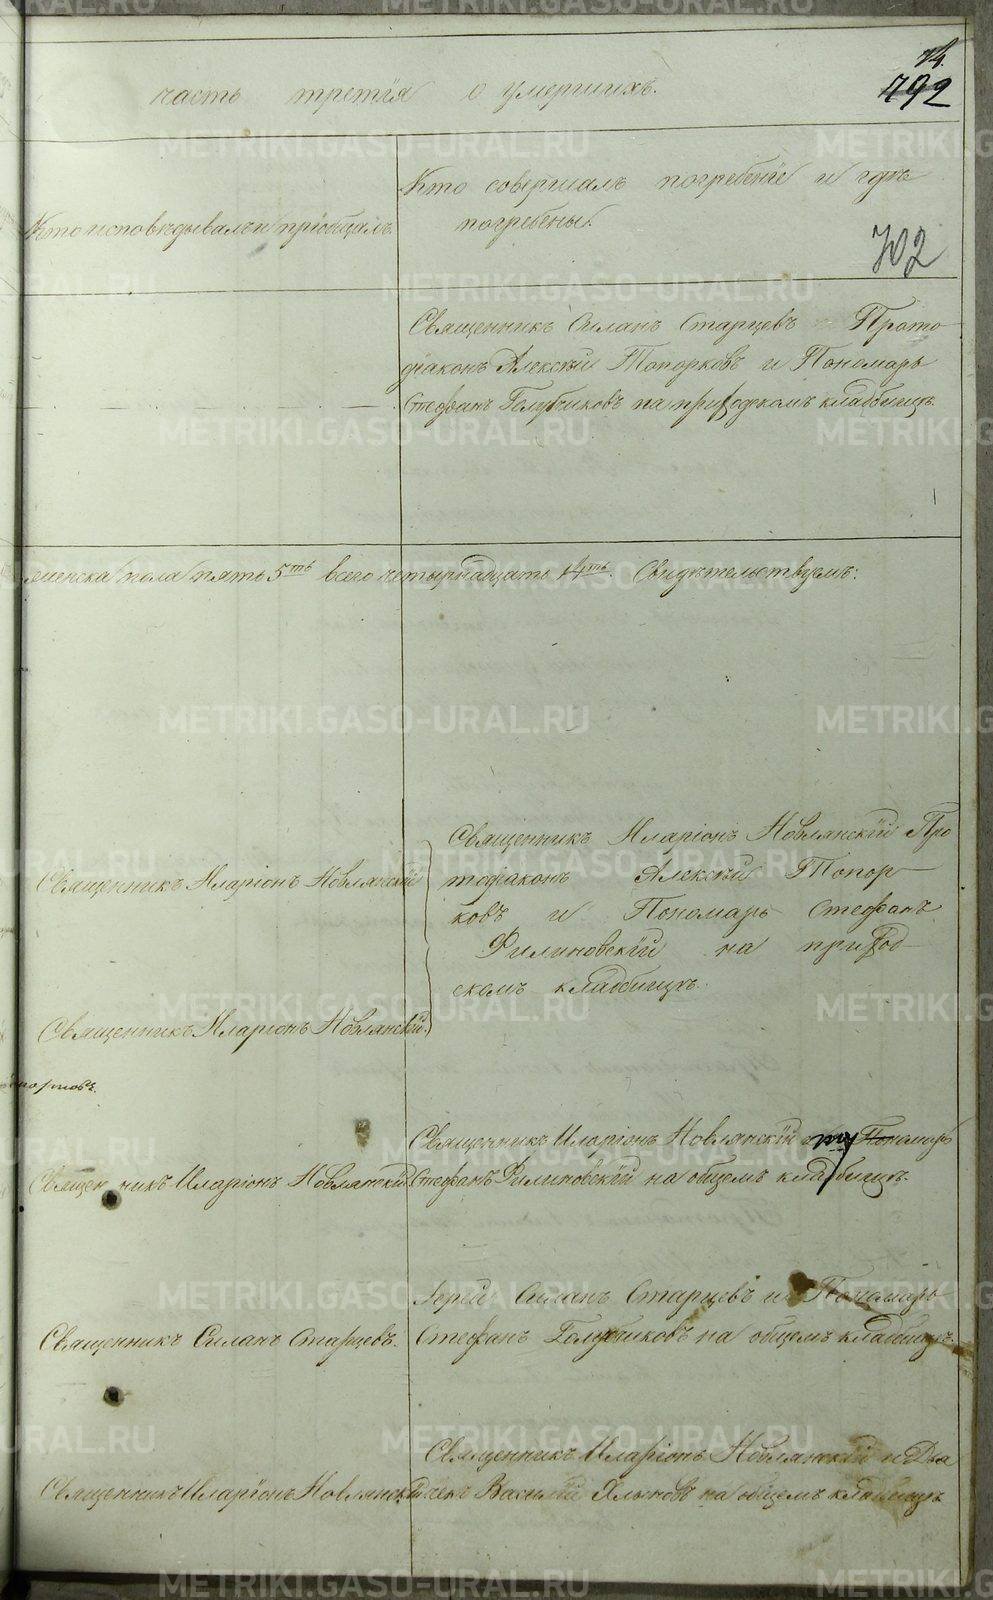 74.
492
часть третія о умершихъ.
Кто исповѣдывалъ и пріобщалъ.
Кто совершалъ погребеніе и гдѣ
погребены.
702
Священникъ Силанъ Старцевъ Прото
діаконъ Алексѣй Топорковъ и Пономарь
Стефанъ Голубчиковъ на приходскомъ кладбищѣ.
женска пола пять 5ть всего четырнадцать 14ть. Свидѣтельствуемъ:
Священникъ Иларіонъ Новлянскій
Священникъ Иларіонъ Новлянскій Про
тодіаконъ Алексѣй Топор
ковъ и Пономарь Стефанъ
Филиновскій на приход
скомъ кладбищѣ.
Священникъ Иларіонъ Новлянскій.
Священникъ Иларіонъ Новлянскій
Священникъ Иларіонъ Новлянскій Пономарь
Стефанъ Филиновскій на общемъ кладбищѣ.
Священникъ Силанъ Старцевъ.
Іерей Силанъ Старцевъ и Пономарь
Стефанъ Голубчиковъ на общемъ кладбищѣ.
Священникъ Иларіонъ Новлянскій
Священникъ Иларіонъ Новлянскій и Дья
чекъ Василій Хлыновъ на общемъ кладбищѣ
METRIKI.GASO-URAL.RU